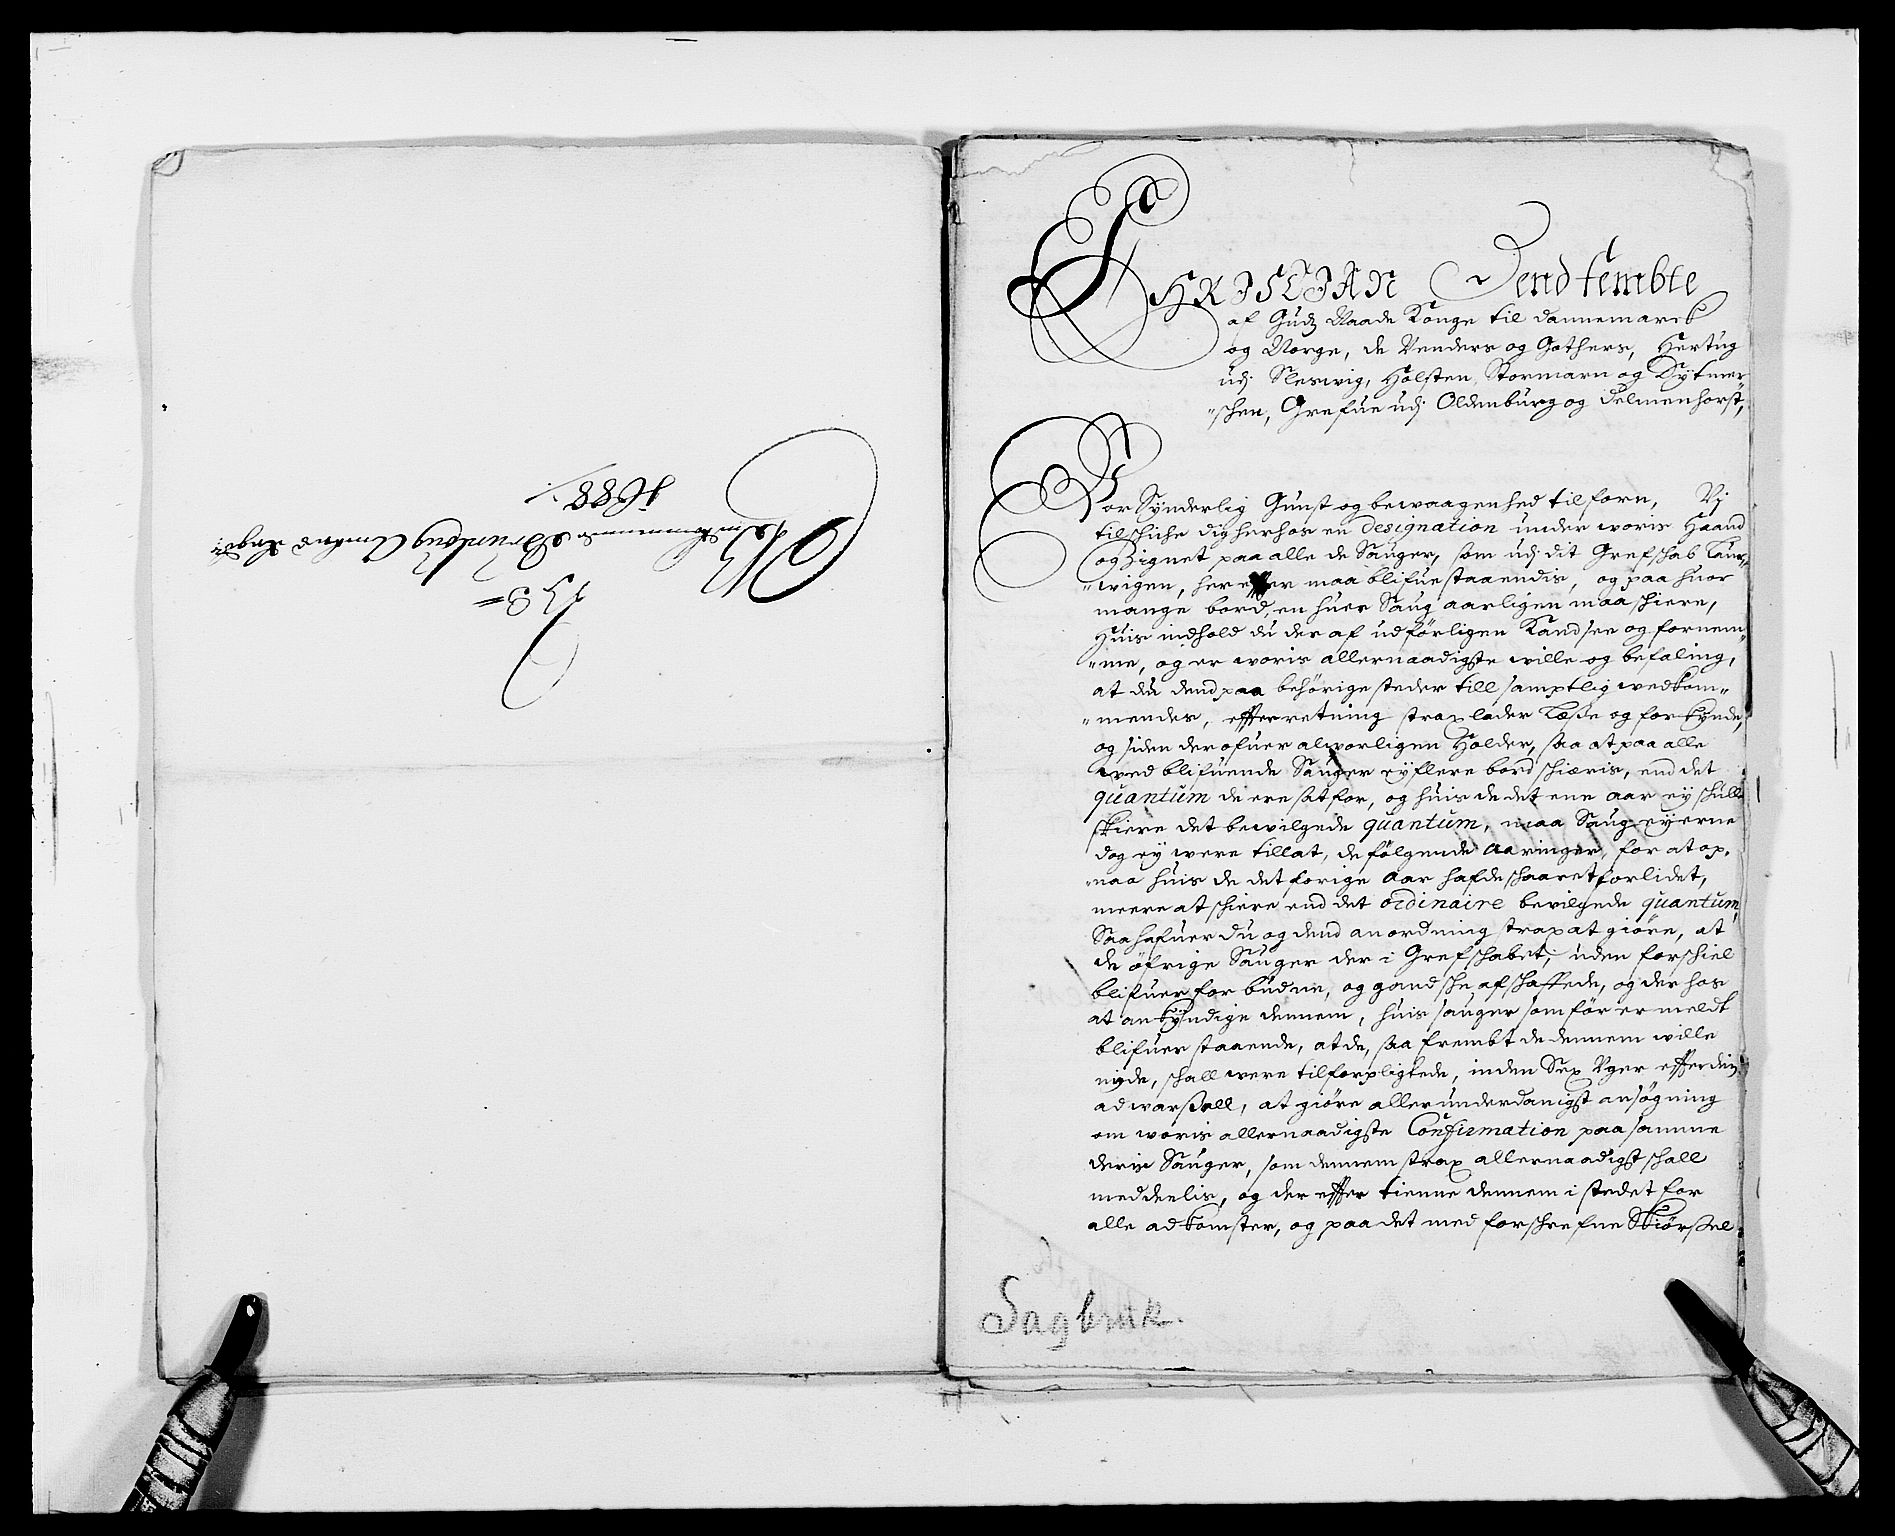 153 =
Brunlaug
1688
CHRISTIAN Dend fembte
af Gudz Naade Konge til Dannemarck
og Norge, de Venders og Gothers, Hertug
udj Sleswig, Holsten, Stormarn og Dytmer„
„schen, Grefue udj Oldenburg og Delmenhorst,
Vor Synderlig Gunst og bewaagenhed tilforn, Vj
tilschiche dig herhos en Designation under woris Haand
og Zignet paa alle de Sauger, som udj dit Grefschab Laur„
„wigen, herefter maa blifue staaendis, og paa huor
mange bord, en huer Saug aarligen maa schiere,
Huis indhold du der af udførligen Kand see og fornem„
„me, og er woris allernaadigste wille og befaling,
at du dend paa behörige steder till samptlig wedkom„
„mendes, efterretning strax lader Læse og forkynde,
og siden der ofuer alworligen Holder, saa at paa alle
wed blifuende Sauger ey flere bord schieris, end det
quantum de ere sat for, og huis de det ene aar ey schulle
skiere det bewilgede quantum, maa Saug eyerne
dog ey were tillat, de følgende Aaringer, for at op„
„naa huis de det forige Aar hafde schaaret forlidet,
meere at schiere end det ordinaire bevilgede quantum,
Saa hafuer du og dend anordning strax at giöre, at
de öfrige Sauger der i Grefschabet, uden forschiel
blifuer forbudne, og gandsche afschaffede, og der hos
at ankyndige dennem, huis sauger som för er meldt
blifuer staaende, at de, saa frembt de dennem wille
nyde, schall were tilforpligtede, inden Sex Uger efter din
adwarsell, at giöre allerunderdanigst ansögning
om woris allernaadigste Confirmation paa samme
deris Sauger, som dennem strax allernaadigst schall
meddeelis, og der efter tienne dennem i stedet for
alle adkomster, og paa det med forschrefne Skiörsel
Sagbruk.